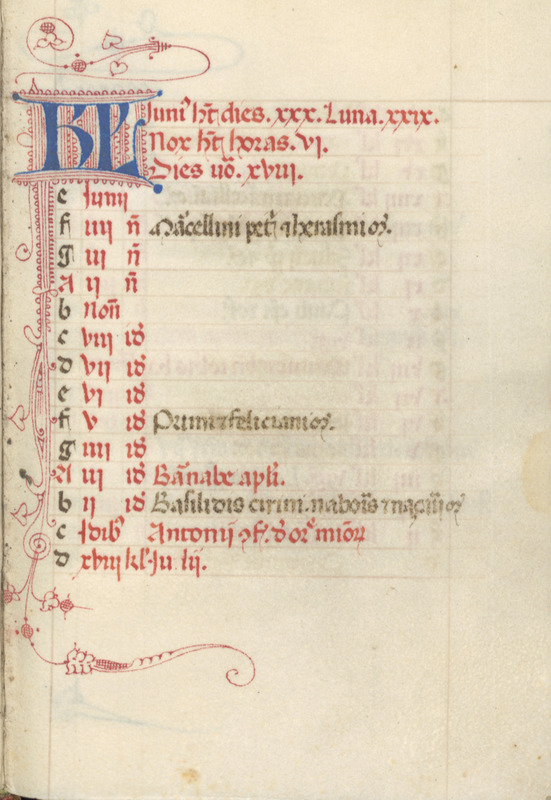 KL Iuni' ht dies. xxx. Luna. xxix.
Nox ht horas. vi.
Dies uo. xviii.
e Iunii
f iiii n Marcellini pet' Therasmi or.
g iii n
A ii n
b non
c viii id
d vii id
e vi id
f v id Primi Tfeliciani or.
g iiii id
A iii id Barnabe apli.
b ii id Basilidis cirini. nabois
c Idib' Antonii 9f. d' or' mior
d xviii kl' Iulii.